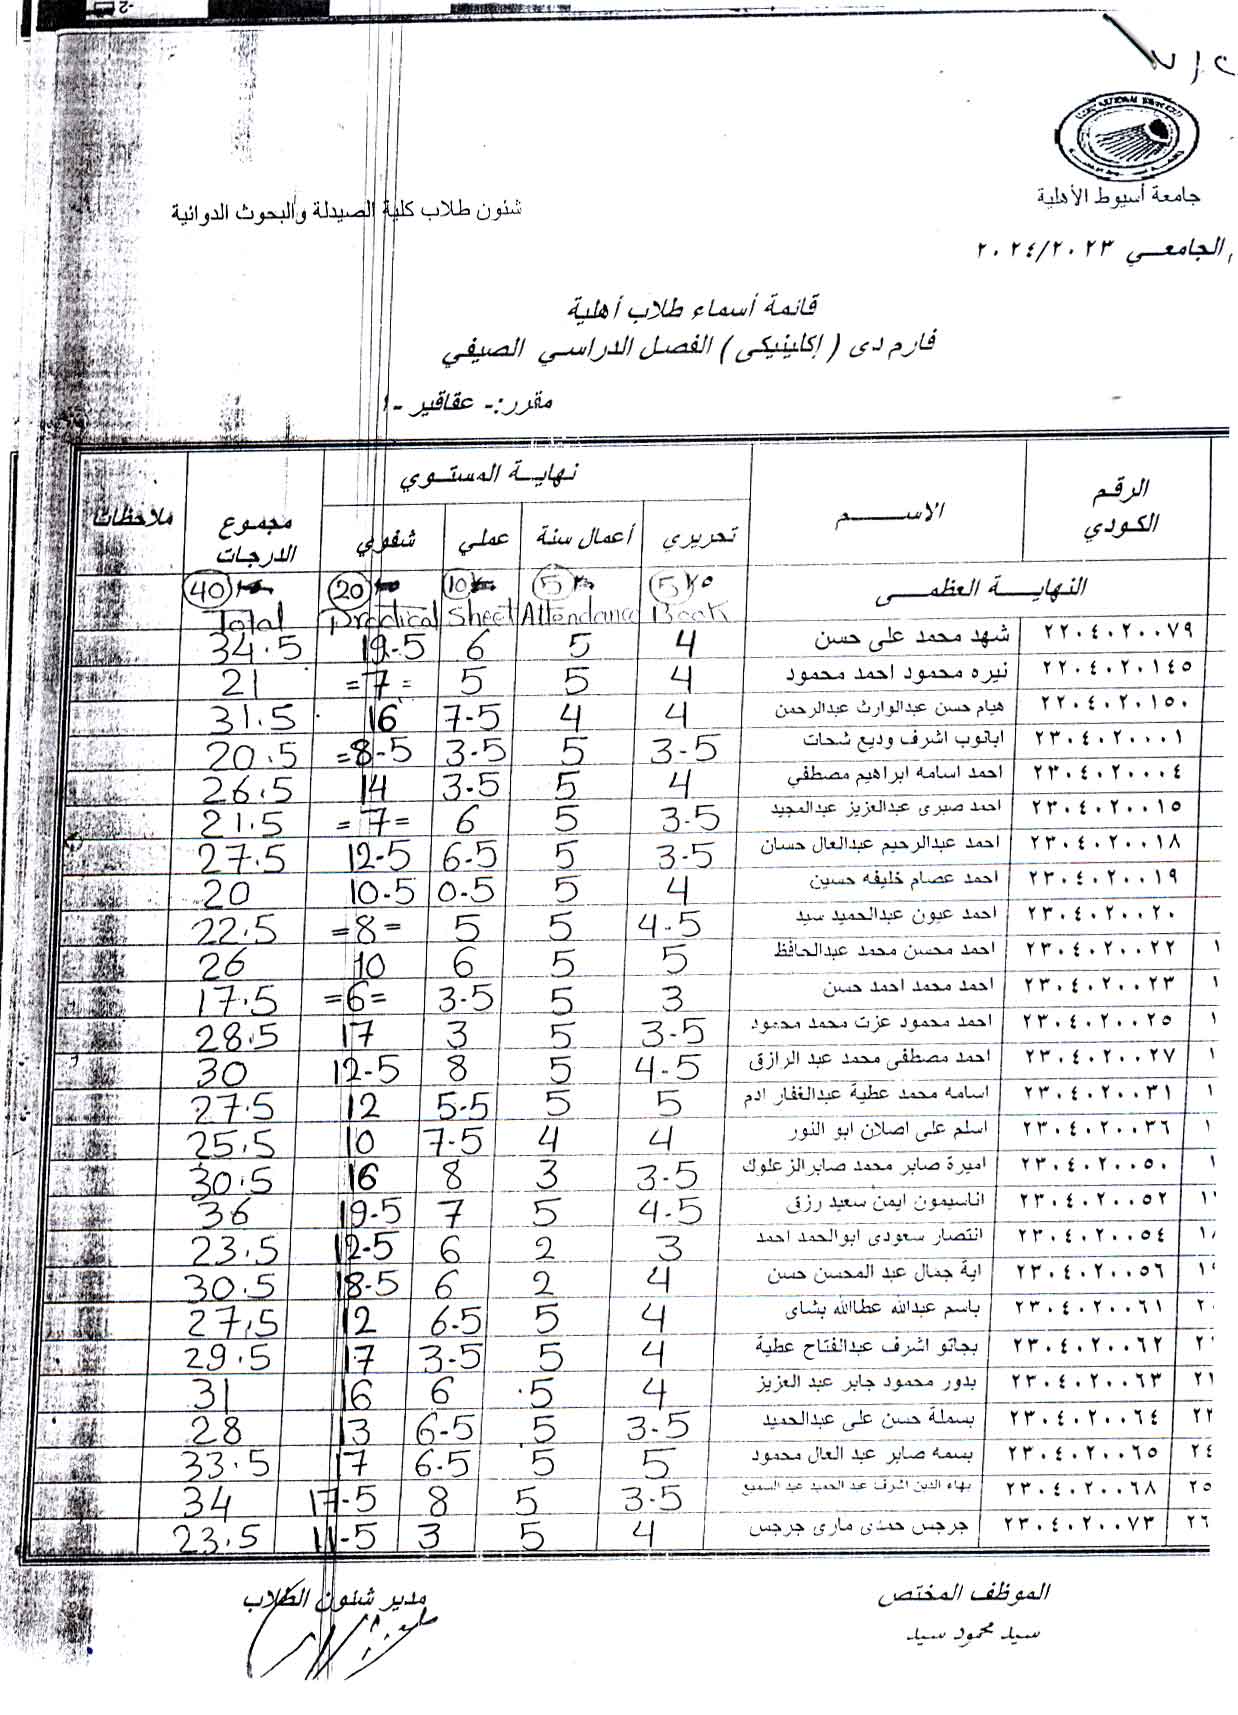 ٢/٧
جامعة أسيوط الأهلية
شئون طلاب كلية الصيدلة والبحوث الدوائية
الجامعي ٢٠٢٤/٢٠٢٣
قائمة أسماء طلاب أهلية
فارم دى ( إكلينيكى ) الفصل الدراسي الصيفي
مقرر:- عقاقير -١
الرقم الكودي الاســـم نهاية المستوي مجموع الدرجات ملاحظات
تحريري أعمال سنة عملي شفوي
النهايـة العظمـى 5 5 10 20 40
Book Attendance Sheet Practical Total
٢٢٠٤٠٢٠٠٧٩ شهد محمد على حسن 4 5 6 19.5 34.5
٢٢٠٤٠٢٠١٤٥ نيره محمود احمد محمود 4 5 5 =7= 21
٢٢٠٤٠٢٠١٥٠ هيام حسن عبدالوارث عبدالرحمن 4 4 7.5 16 31.5
٢٣٠٤٠٢٠٠٠١ ابانوب اشرف وديع شحات 3.5 5 3.5 =8.5 20.5
٢٣٠٤٠٢٠٠٠٤ احمد اسامه ابراهيم مصطفي 4 5 3.5 14 26.5
٢٣٠٤٠٢٠٠١٥ احمد صبرى عبدالعزيز عبدالمجيد 3.5 5 6 =7= 21.5
٢٣٠٤٠٢٠٠١٨ احمد عبدالرحيم عبدالعال حسان 3.5 5 6.5 12.5 27.5
٢٣٠٤٠٢٠٠١٩ احمد عصام خليفه حسين 4 5 0.5 10.5 20
٢٣٠٤٠٢٠٠٢٠ احمد عيون عبدالحميد سيد 4.5 5 5 =8= 22.5
١ ٢٣٠٤٠٢٠٠٢٢ احمد محسن محمد عبدالحافظ 5 5 6 10 26
١ ٢٣٠٤٠٢٠٠٢٣ احمد محمد احمد حسن 3 5 3.5 =6= 17.5
١ ٢٣٠٤٠٢٠٠٢٥ احمد محمود عزت محمد محمود 3.5 5 3 17 28.5
١ ٢٣٠٤٠٢٠٠٢٧ احمد مصطفى محمد عبد الرازق 4.5 5 8 12.5 30
١ ٢٣٠٤٠٢٠٠٣١ اسامه محمد عطية عبدالغفار ادم 5 5 5.5 12 27.5
١ ٢٣٠٤٠٢٠٠٣٦ اسلم على اصلان ابو النور 4 4 7.5 10 25.5
١ ٢٣٠٤٠٢٠٠٥٠ اميرة صابر محمد صابرالزعلوك 3.5 3 8 16 30.5
٢٣٠٤٠٢٠٠٥٢ اناسيمون ايمن سعيد رزق 4.5 5 7 19.5 36
٢٣٠٤٠٢٠٠٥٤ انتصار سعودى ابوالحمد احمد 3 2 6 12.5 23.5
١٩ ٢٣٠٤٠٢٠٠٥٦ اية جمال عبد المحسن حسن 4 2 6 18.5 30.5
٢٠ ٢٣٠٤٠٢٠٠٦١ باسم عبدالله عطاالله بشاى 4 5 6.5 12 27.5
٢٣٠٤٠٢٠٠٦٢ بجاتو اشرف عبدالفتاح عطية 4 5 3.5 17 29.5
٢٣٠٤٠٢٠٠٦٣ بدور محمود جابر عبد العزيز 4 5 6 16 31
٢٣ ٢٣٠٤٠٢٠٠٦٤ بسملة حسن على عبدالحميد 3.5 5 6.5 13 28
٢٤ ٢٣٠٤٠٢٠٠٦٥ بسمه صابر عبد العال محمود 5 5 6.5 17 33.5
٢٥ ٢٣٠٤٠٢٠٠٦٨ بهاء الدين اشرف عبد الحميد عبد السميع 3.5 5 8 17.5 34
٢٦ ٢٣٠٤٠٢٠٠٧٣ جرجس حمدى مارى جرجس 4 5 3 11.5 23.5
الموظف المختص مدير شئون الطلاب
سيد محمود سيد